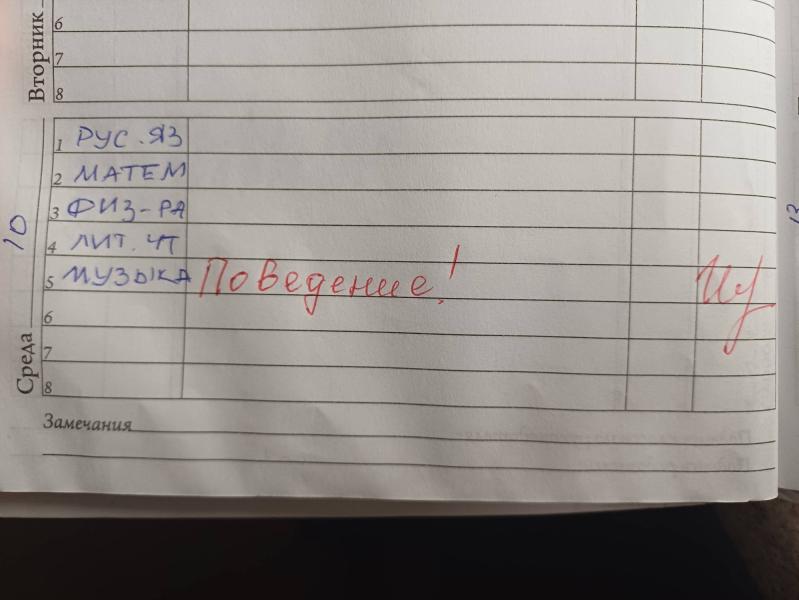 Вторник
6
7
8
Среда 10
1 РУС.ЯЗ
2 МАТЕМ
3 ФИЗ-РА
4 ЛИТ.ЧТ
5 МУЗЫКА Поведение!
6
7
8
Замечания